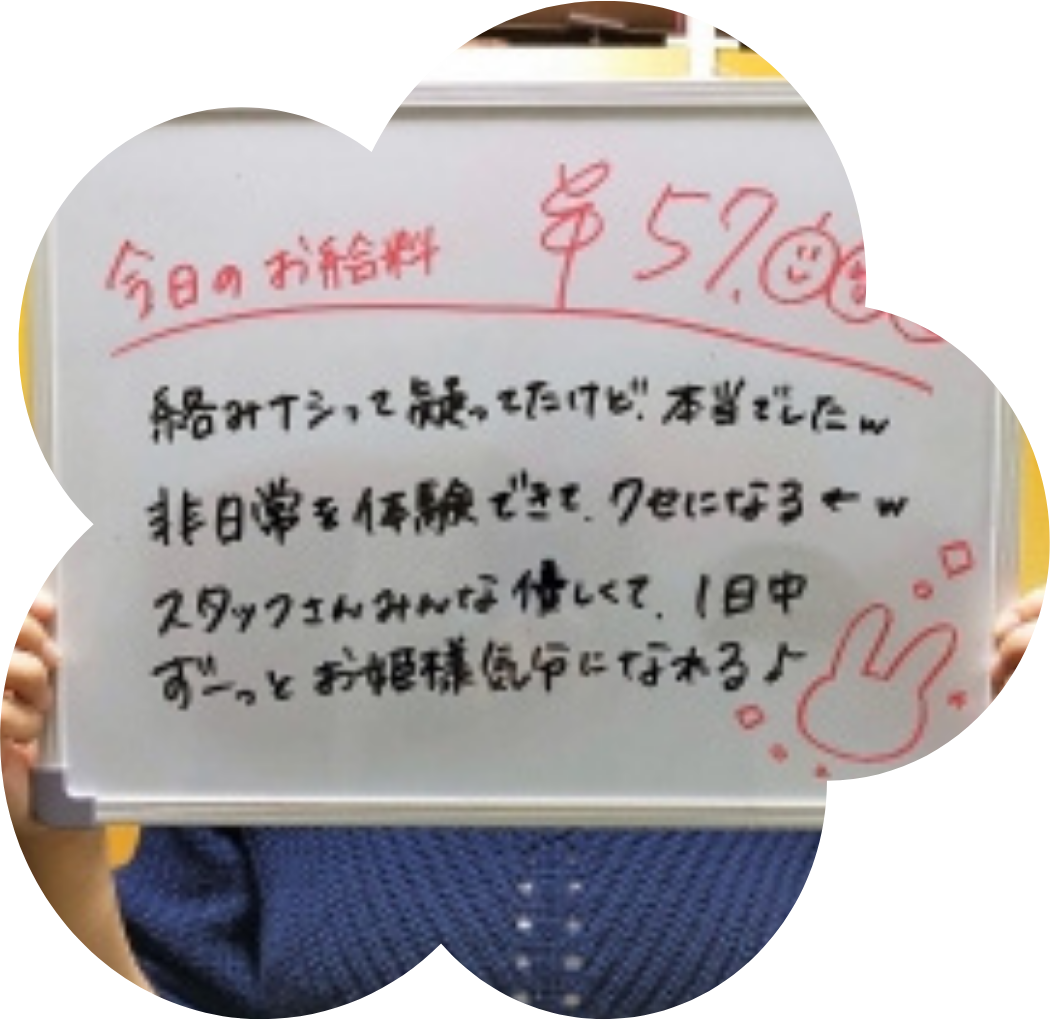 今日のお給料 ¥57.000
絡みナシって疑ってたけど、本当でしたw
非日常を体験できて、クセになる←w
スタッフさんみんな優しくて、1日中
ずーっとお姫様気分になれる♪